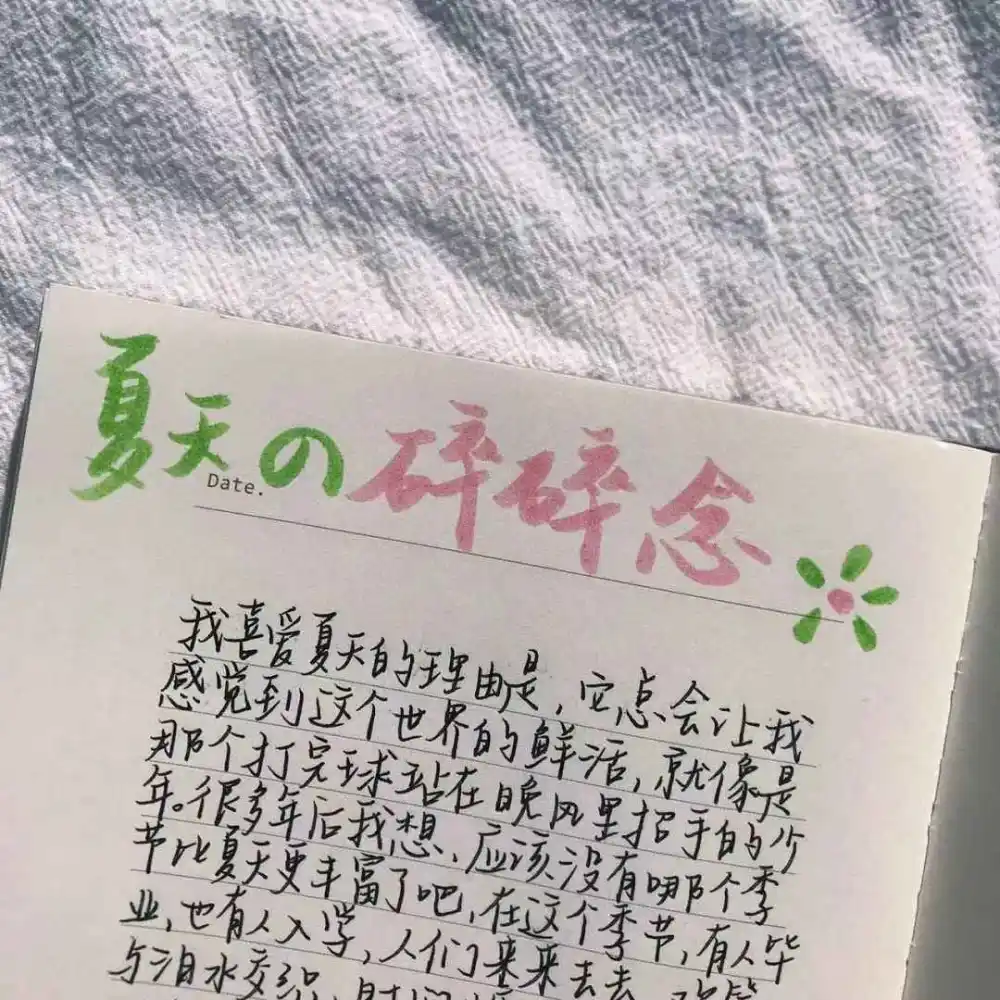 夏天の碎碎念
Date.
我喜爱夏天的理由是，它总会让我
感觉到这个世界的鲜活，就像是
那个打完球站在晚风里招手的少
年。很多年后我想，应该没有哪个季
节比夏天更丰富了吧，在这个季节，有人毕
业，也有人入学，人们来来去去，欢笑
与泪水交织，